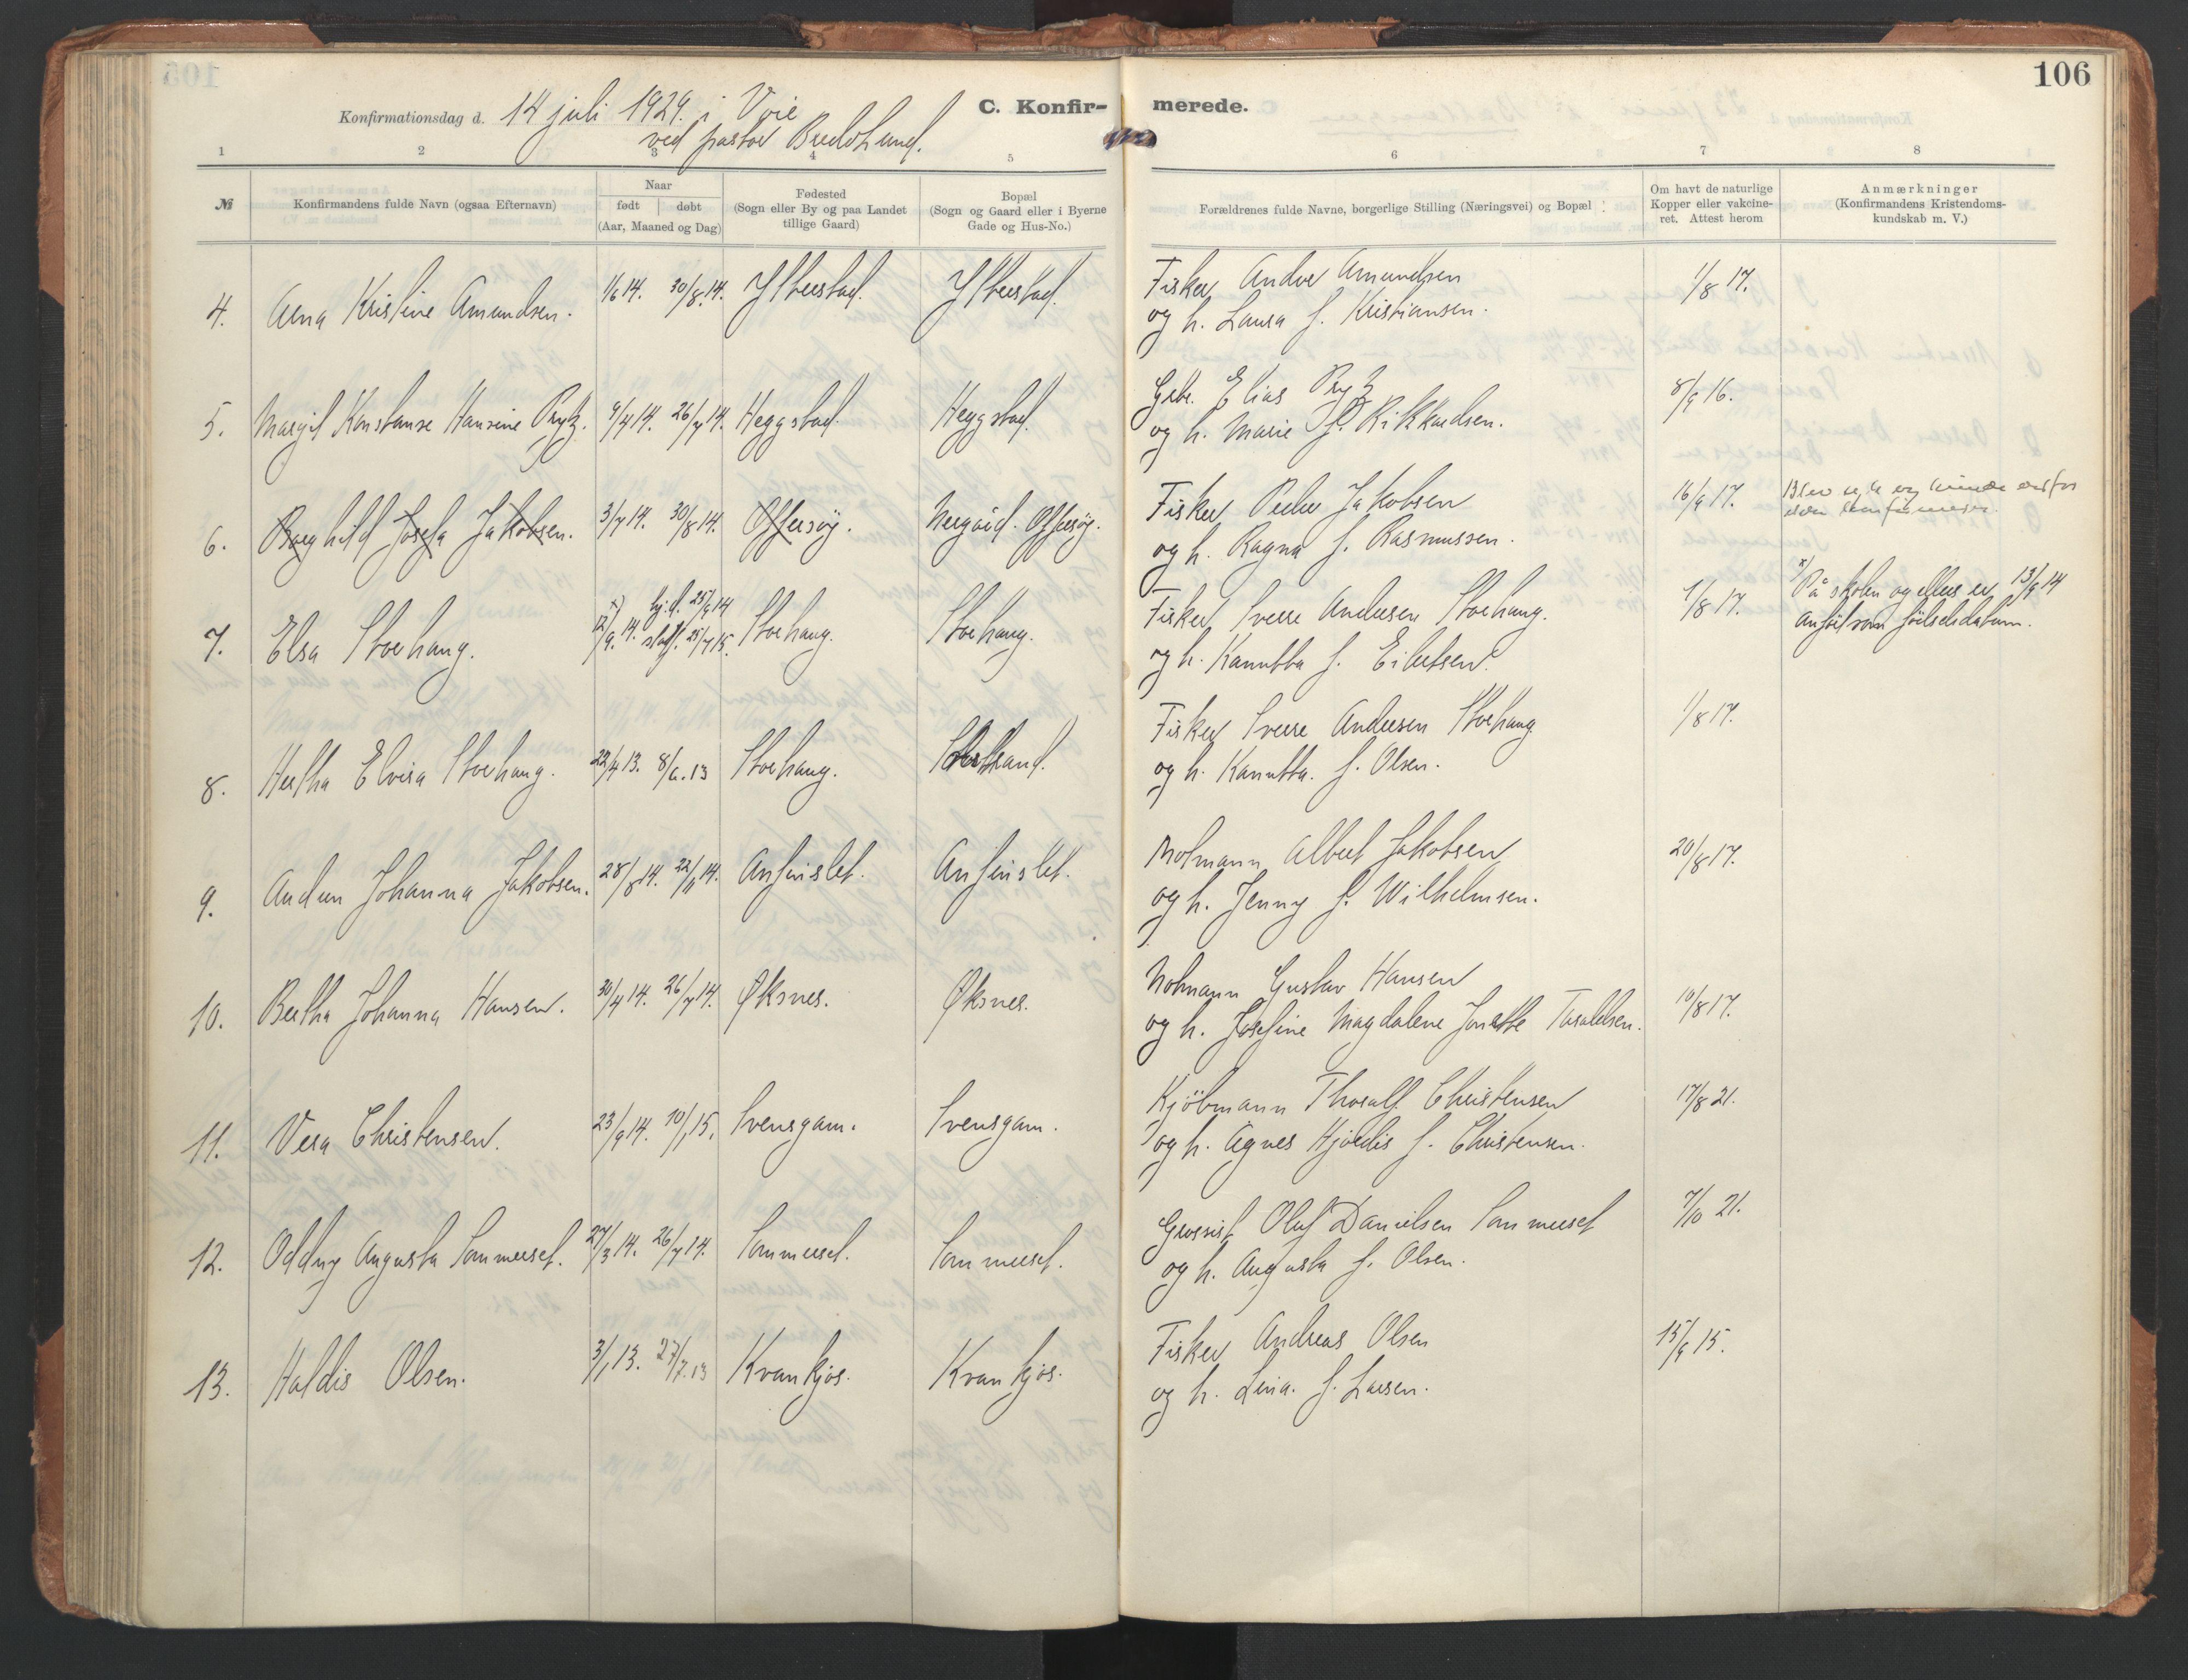 106
Konfirmationsdag d. 14 juli 1929. i Voie
ved pastor
C. Konfir- merede.
1 2 3 4 5 6 7 8
№
Konfirmandens fulde Navn (ogsaa Efternavn)
Naar
født døbt
(Aar, Maaned og Dag)
Fødested
(Sogn eller By og paa Landet
tillige Gaard)
Bopæl
(Sogn og Gaard eller i Byerne
Gade og Hus-No.)
Forældrenes fulde Navne, borgerlige Stilling (Næringsvei) og Bopæl
Om havt de naturlige
Kopper eller vakcine-
ret. Attest herom
Anmærkninger
(Konfirmandens Kristendoms-
kundskab m. V.)
4. Arna Kristine Amundsen. 1/6 14. 30/8.14. Ytterstad. Ytterstad. Fisker Andor Amundsen 1/8 17.
og h. Laura f. Kristiansen.
5. Margit Konstanse Hansine Prytz. 9/4 14. 26/7 14. Heggstad. Heggstad. Gbr. Elias Prytz 8/9 16.
og h. Marie f. Rikkardsen.
6. Borghild Josefa Jakobsen. 3/7 14. 30/8 14. Offersøy. Nergård. Offersøy. Fisker Peder Jakobsen 16/9 17. Blev syk og kunde derfor
og h. Ragna f. Rasmussen. konfirmeres.
7. Elsa Storhaug. x) 12/9. 14. hj.d. 25/9 14
stadf. 25/7 15. Storhaug. Storhaug. Fisker Sverre Andersen Storhaug. 1/8 17. x) På skolen og ellers er 13/9 14
og h. Kanutta f. Eilertsen. anført som födselsdatum.
8. Hertha Elvira Storhaug. 22/4 13. 8/6.13 Storhaug. Fisker Sverre Andersen Storhaug 1/8 17.
og h. Kanutta. f. Olsen.
9. Andrea Johanna Jakobsen. 28/8 14. 22/11 14. Anfinslet. Anfinslet. Notmann Albert Jakobsen 20/8 17.
og h. Jenny f. Wilhelmsen.
10. Bertha Johanna Hansen. 30/4 14. 26/7 14. Øksnes. Øksnes. Notmann Gustav Hansen 10/8 17.
og h. Josefine Magdalene Jonette Toraldsen.
11. Vera Christensen. 23/9 14. 10/1 15. Svensgam. Svensgam. Kjöbmann Thoralf Christensen 17/8 21.
og h. Agnes Hjördis f. Christensen.
12. Oddny Augusta Sommerset. 27/3 14. 26/7 14. Sommerset. Sommerset. Grosist Oluf Danielsen Sommerset 7/10 21.
og h. Augusta f. Olsen.
13. Haldis Olsen. 3/1 13. 27/7.13 Kvankjos. Kvankjos. Fisker Andreas Olsen 15/9 15.
og h. Lina. f. Larsen.